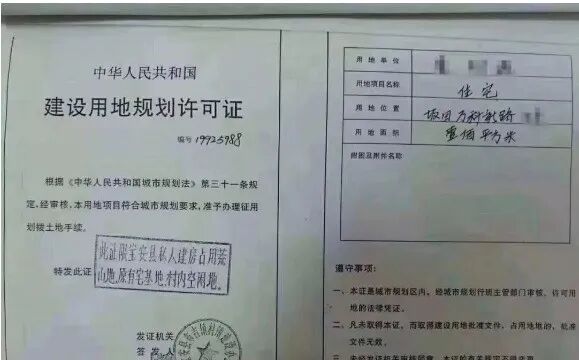 中华人民共和国
建设用地规划许可证
编号 19925988
根据《中华人民共和国城市规划法》第三十一条规
定,经审核,本用地项目符合城市规划要求,准予办理征用
划拨土地手续。
特发此证
此证限宝安县私人建房占用荒
山地,原有宅基地,村内空闲地。
发证机关
签发人
用地单位
用地项目名称 住宅
用地位置 坂田万科
用地面积 壹佰平方米
附图及附件名称
遵守事项:
一、本证是城市规划区内,经城市规划行政主管部门审核,许可用
地的法律凭证。
二、凡未取得本证,而取得建设用地批准文件、占用地的,批准
文件无效。
三、未经发证机关审核同意,本证的有关规定不得变